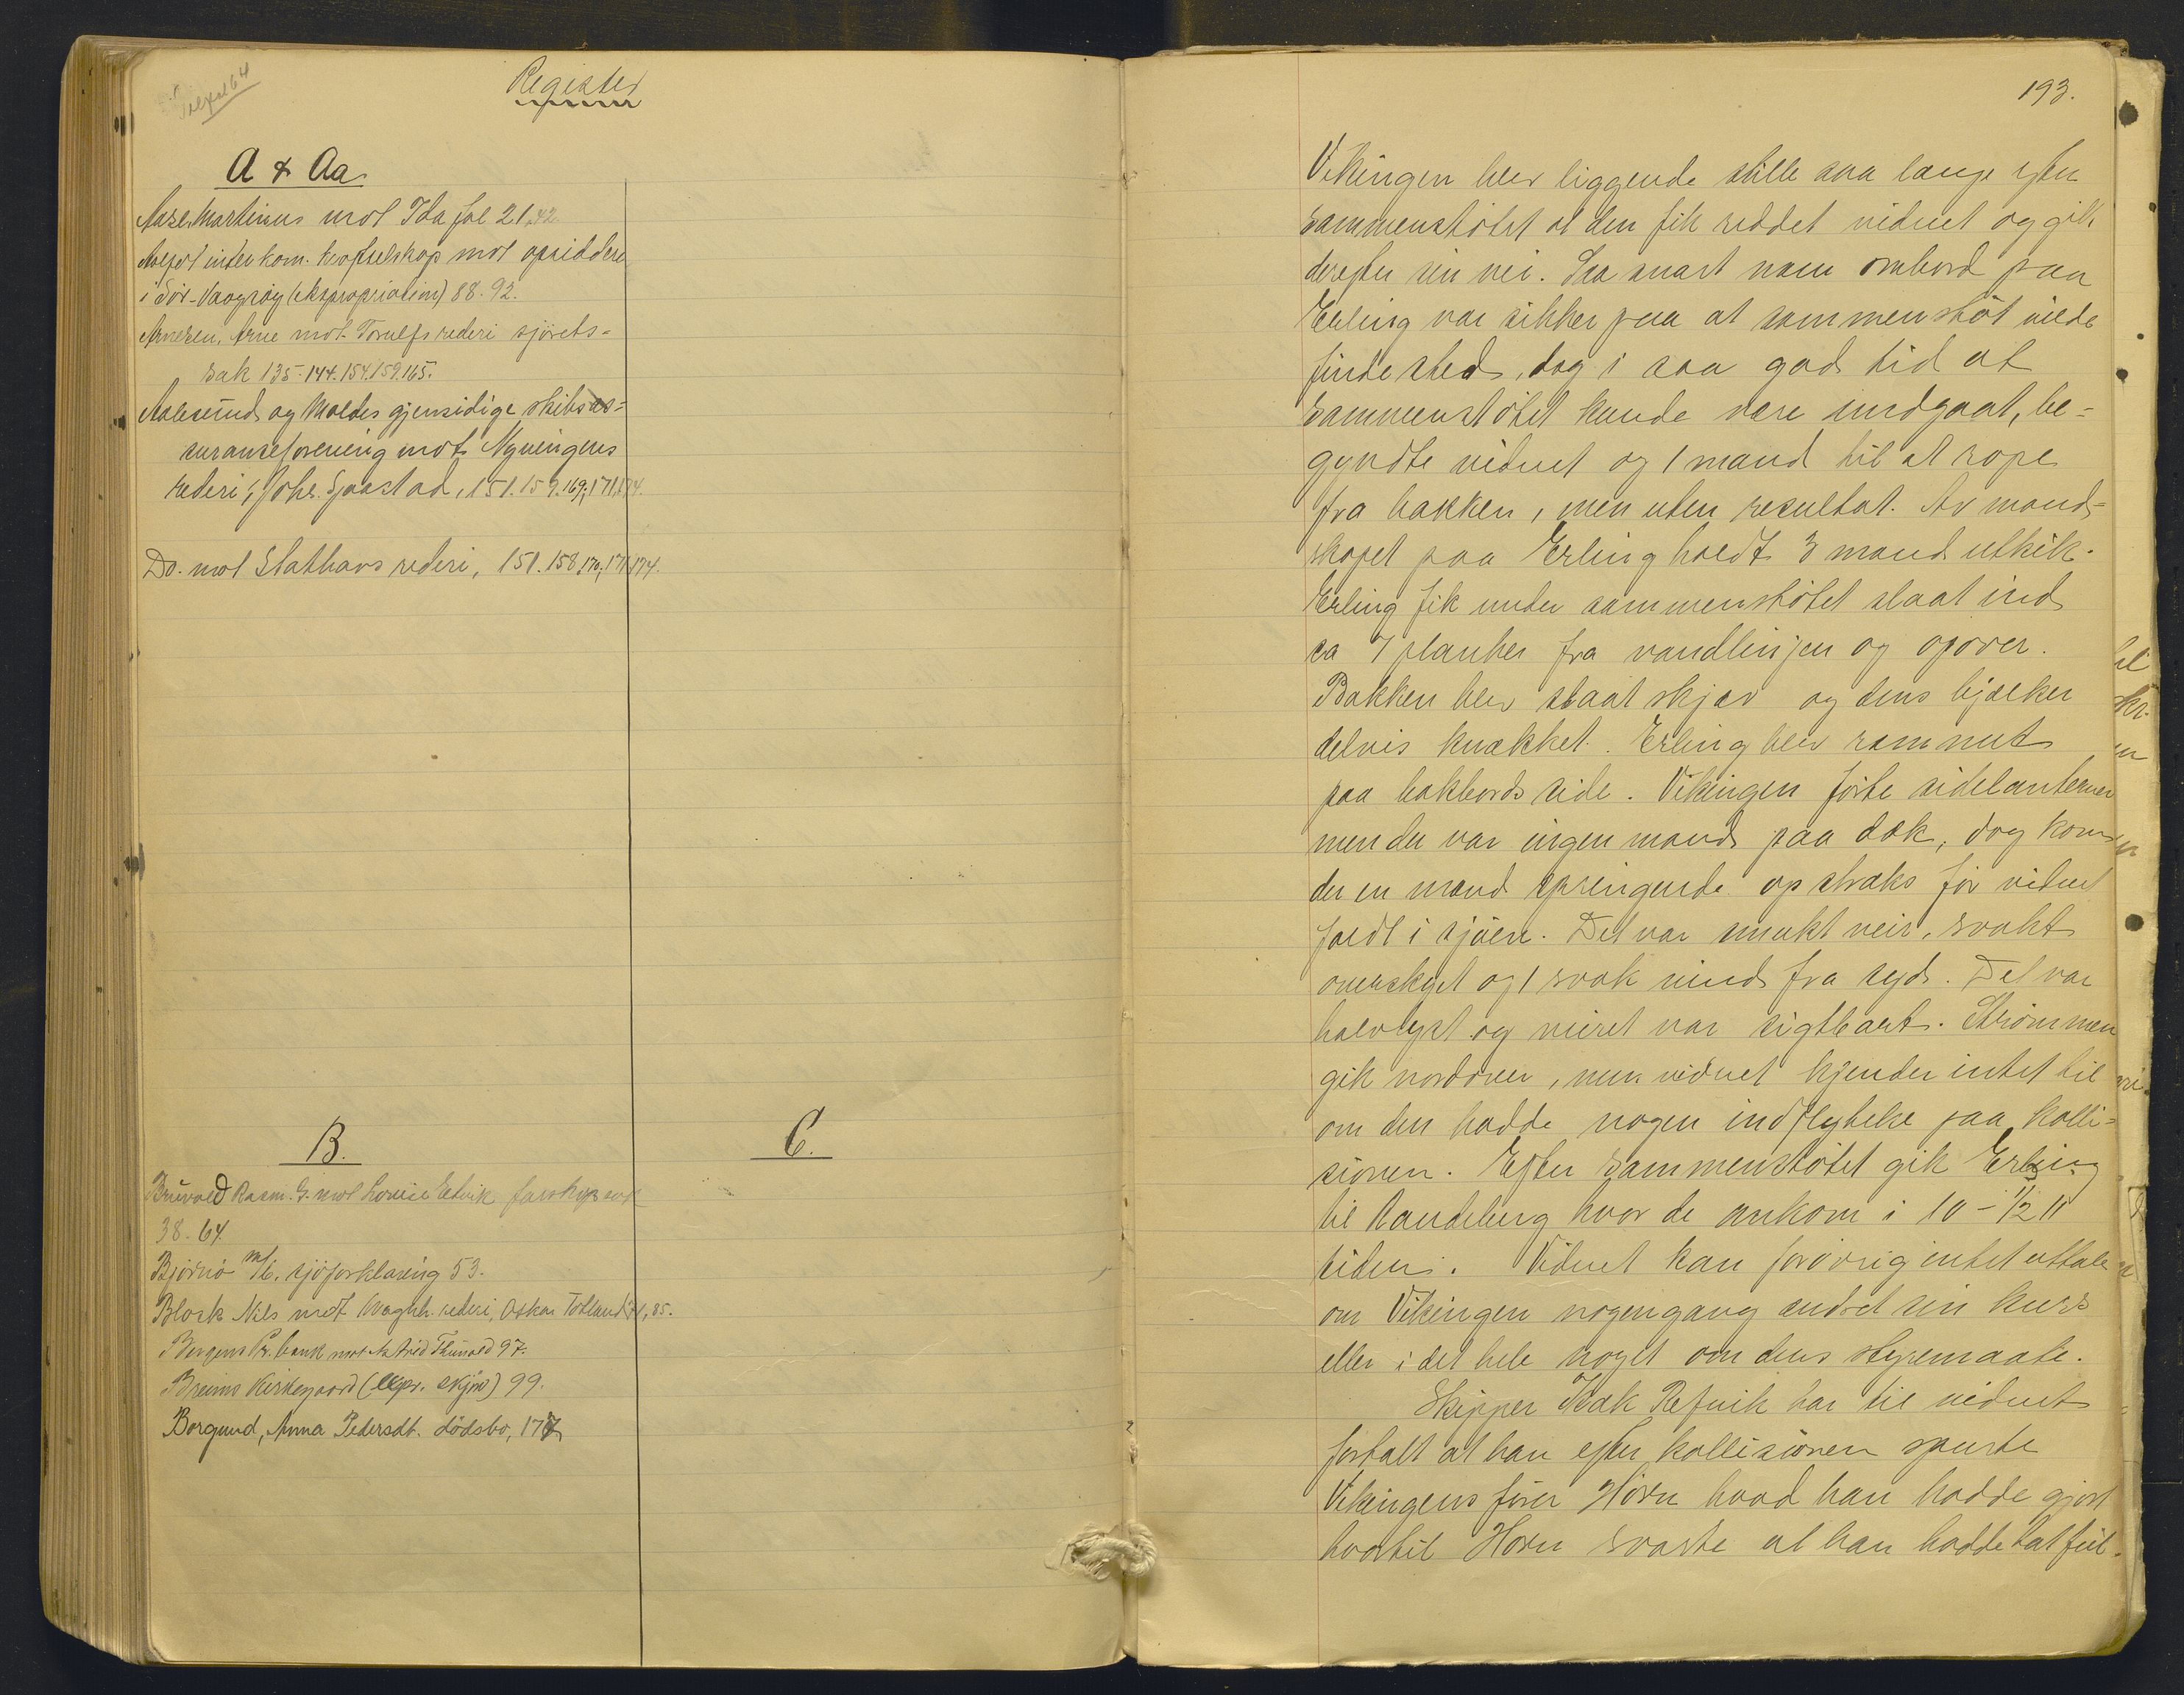 Register
A & Aa
Aase, Martinus mot Ida fol 21, 42
interkom. kraftselskap mot opsiddere
i Sör-Vaagsöy (ekspropriation) 88. 92.
Arnesen, Arne mot Torulfs rederi sjörets-
sak 135-144. 154. 159. 165.
Aalesund og Moldes gjensidige skibsas-
suranseforening mot Nyvingens
rederi, Johs. Sjaastad, 151. 159. 169, 171, 174.
Do. mot Stathavs rederi, 151. 158, 170, 171, 174.
B.
Rasm. G. mot Louise farskaps sak
38-64.
Björnö m/b, sjöforklaring 53.
Block Nils mot rederi, Oskar Totland 71, 85.
Bergens Pr. bank mot Astrid 97.
Breims Kirkegaard (expr. skjön) 99.
Borgund, Anna Pedersdt. dödsbo, 177
C.
193.
Vikingen blev liggende stille saa længe efter
sammenstötet at den fik reddet vidnet og gik
derefter sin vei. Saa snart man ombord paa
Erling var sikker paa at sammenstöt vilde
finde sted, dog i saa god tid at
sammenstötet kunde være undgaat, be-
gyndte vidnet og 1 mand til at rope
fra bakken, men uten resultat. Av mand-
skapet paa Erling holdt 3 mand utkik.
Erling fik under sammenstötet slaat ind
ca 7 planker fra vandlinjen og opover.
Bakken blev slaat skjæv og dens bjælker
delvis knækket. Erling blev rammet
paa bakbords side. Vikingen förte sidelanterner
men der var ingen mand paa dæk, dog kom
der en mand springende op straks för vidnet
faldt i sjöen. Det var smukt veir, svakt
overskyet og svak vind fra syd. Det var
halvlyst og veiret var sigtbart. Strömmen
gik nordover, men vidnet kjender intet til
om den hadde nogen indflytelse paa kolli-
sionen. Efter sammenstötet gik Erling
til Raudeberg hvor de ankom i 10-1/2 11
tiden. Vidnet kan forövrig intet uttale
om Vikingen nogengang ændret sin kurs
eller i det hele noget om dens styremaate.
Skipper Isak Refvik har til vidnet
fortalt at han efter kollisionen spurte
Vikingens förer Horn hvad han hadde gjort
hvortil Horn svarte at han hadde tat feil.